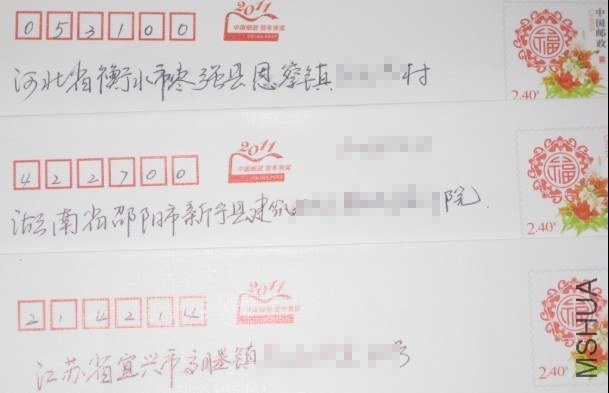 053100
2011
中国邮政 贺年有奖
CHINA POST
中国邮政
2.40元
河北省衡水市枣强县恩察镇 村
422700
2011
中国邮政 贺年有奖
2.40元
湖南省邵阳市新宁县建筑 院
214214
2011
中国邮政 贺年有奖
2.40元
江苏省宜兴市高塍镇 号
MSHUA